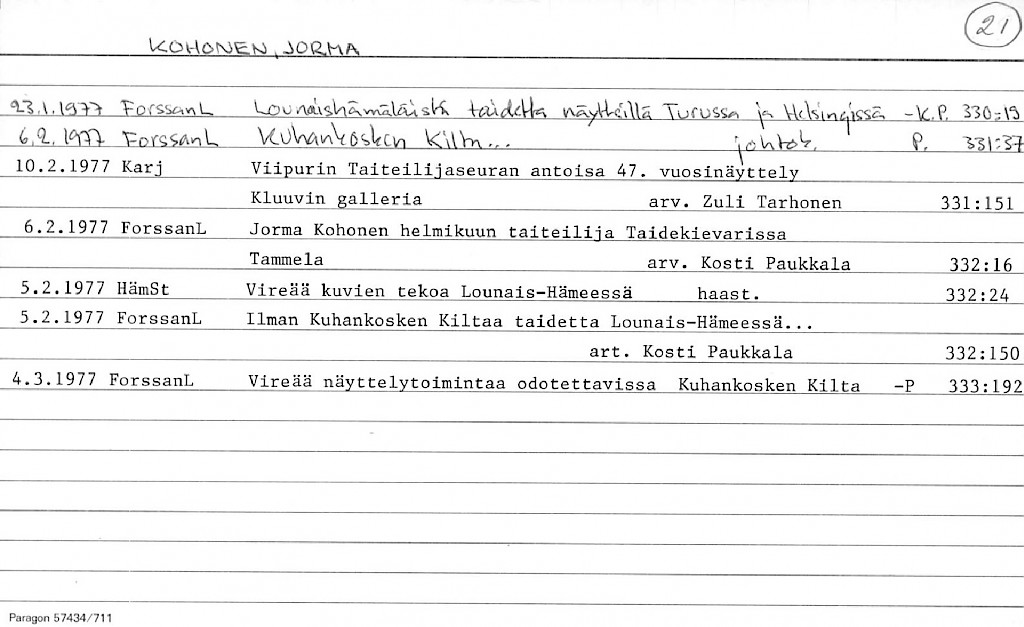 21
KOHONEN, JORMA
23.1.1977 ForssanL Lounaishämäläistä taidetta näytteillä Turussa ja Helsingissä -K.P. 330:19
6.2.1977 ForssanL Kuhankosken Kilta... johtok. P. 331:37
10.2.1977 Karj Viipurin Taiteilijaseuran antoisa 47. vuosinäyttely
Kluuvin galleria arv. Zuli Tarhonen 331:151
6.2.1977 ForssanL Jorma Kohonen helmikuun taiteilija Taidekievarissa
Tammela arv. Kosti Paukkala 332:16
5.2.1977 HämSt Vireää kuvien tekoa Lounais-Hämeessä haast. 332:24
5.2.1977 ForssanL Ilman Kuhankosken Kiltaa taidetta Lounais-Hämeessä...
art. Kosti Paukkala 332:150
4.3.1977 ForssanL Vireää näyttelytoimintaa odotettavissa Kuhankosken Kilta -P 333:192
Paragon 57434/711